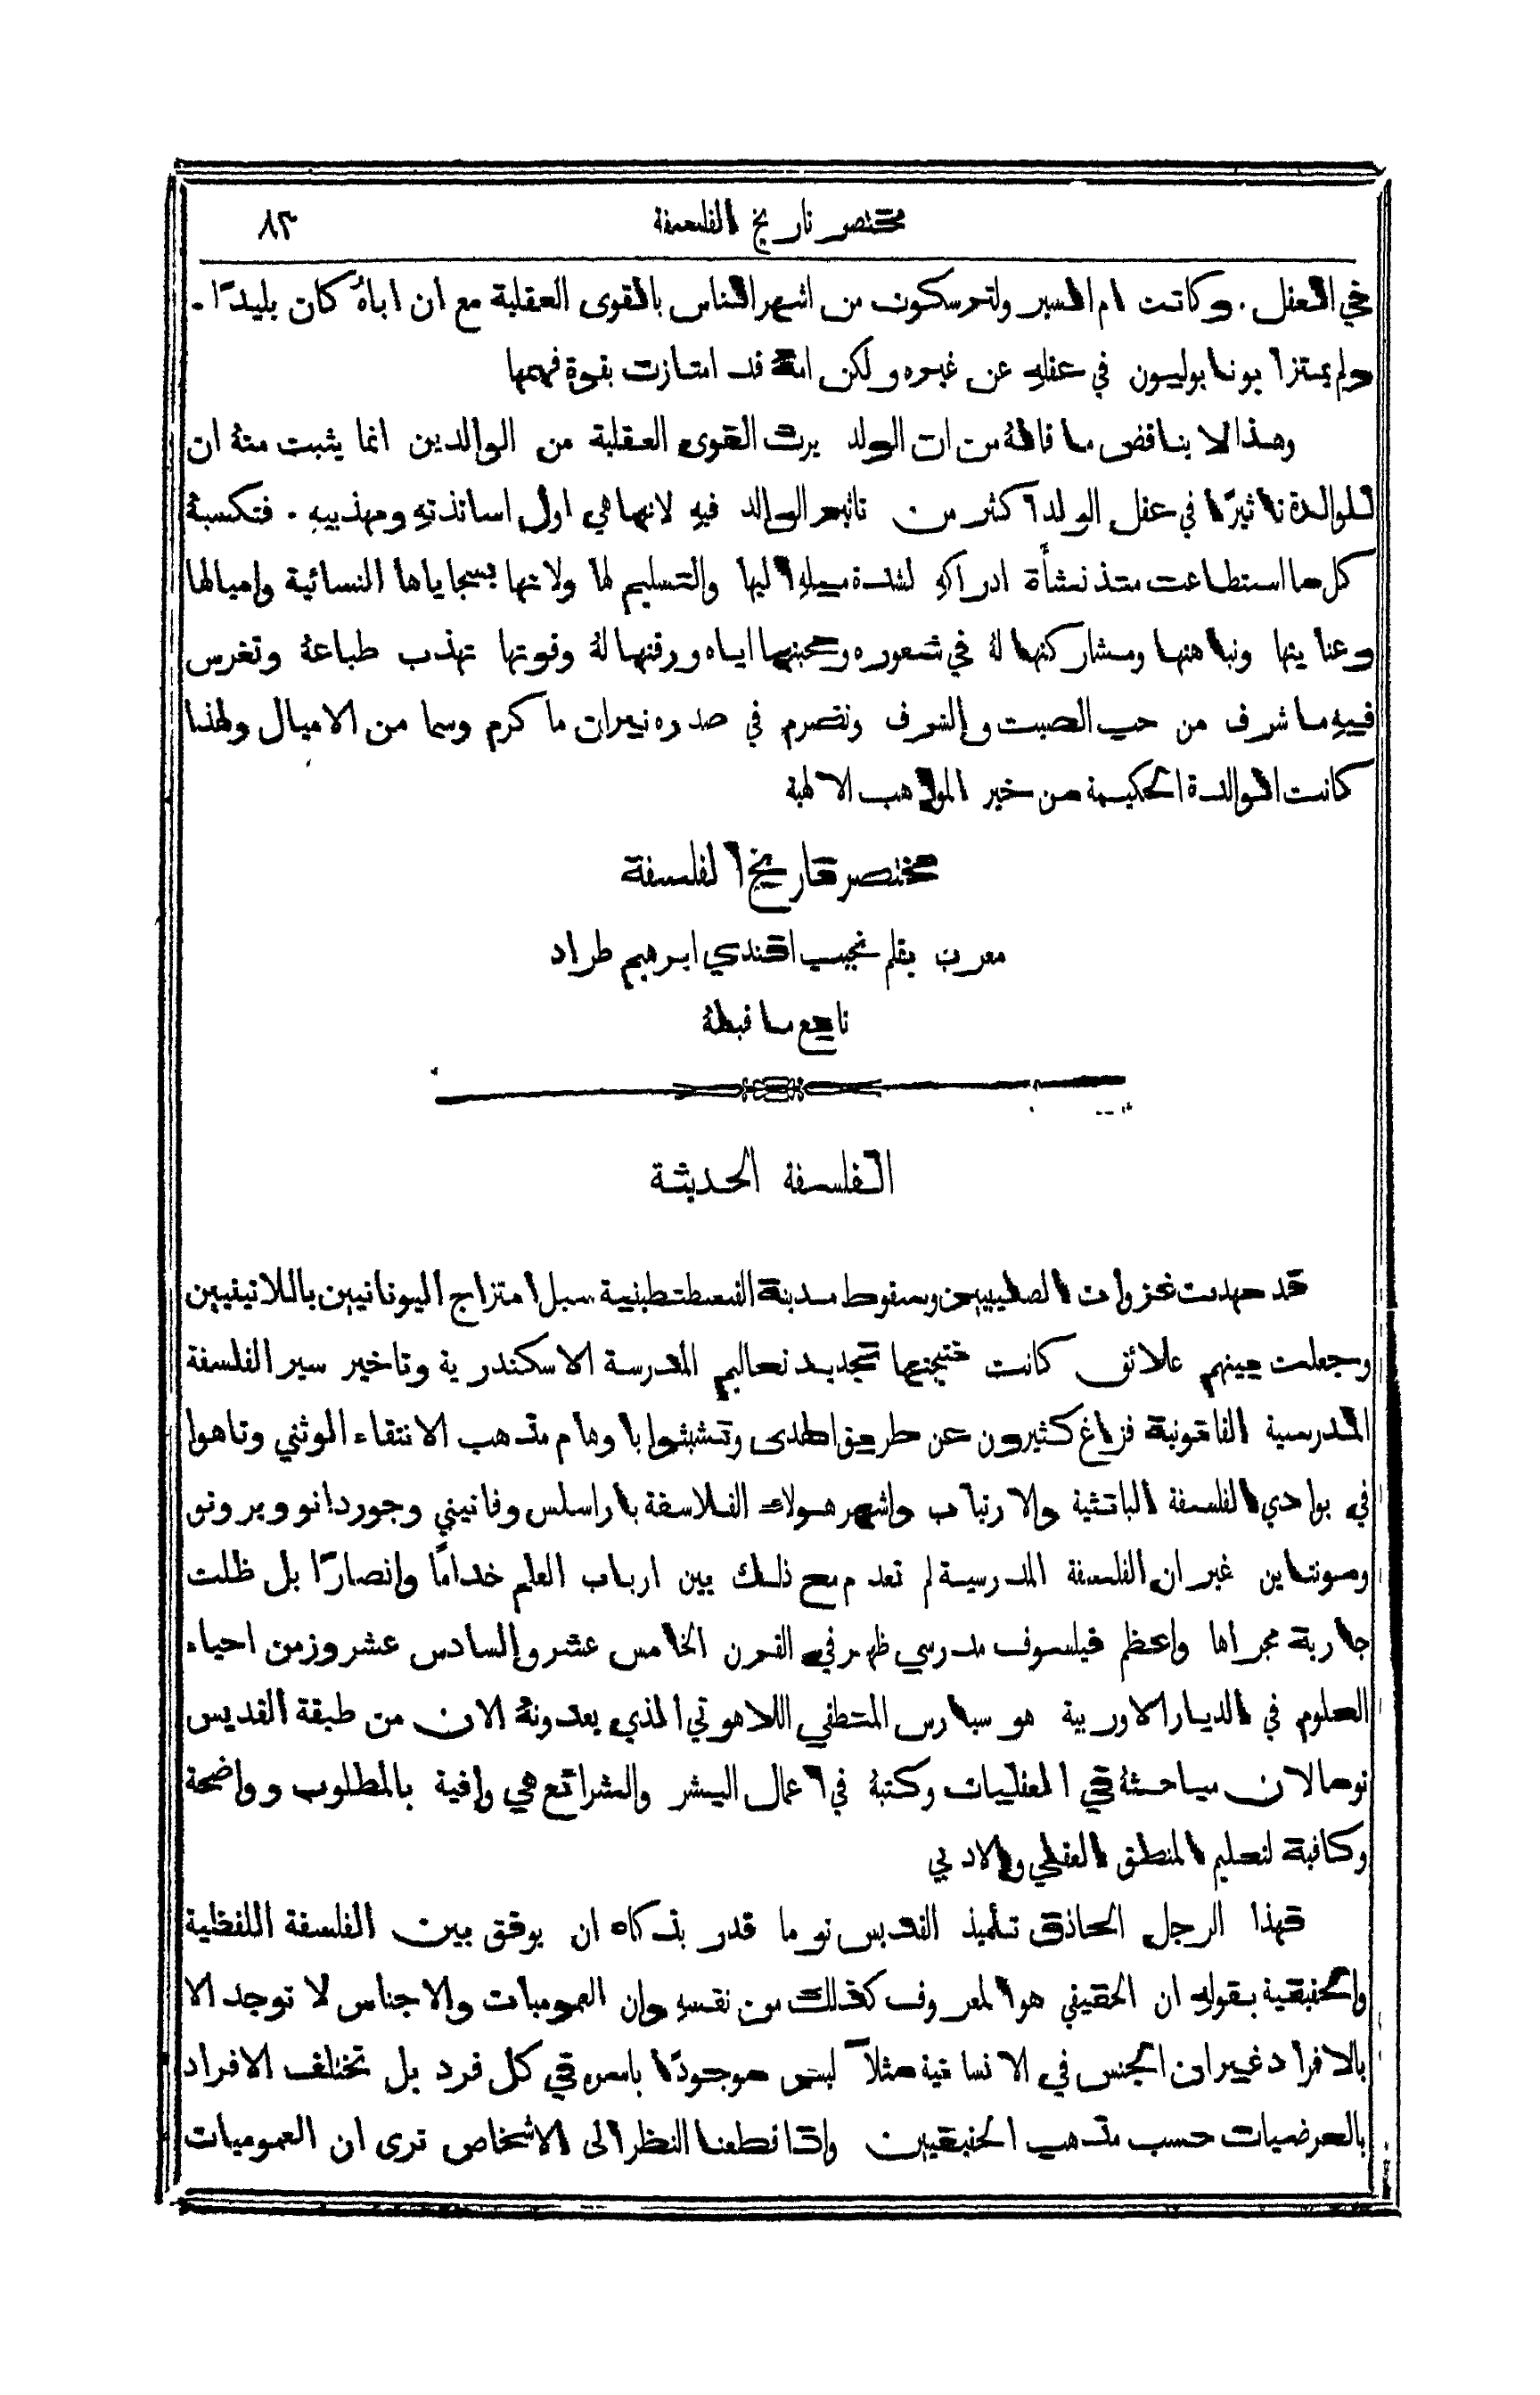 مختصر تاريخ الفلسفة ٨٣
في العقل. وكانت ام السير ولتر سكوت من اشهر الناس بالقوى العقلية مع ان اباهُ كان بليدًا.
ولم يمتز ابو نابوليون في عقلهِ عن غيره ولكن امهُ قد امتازت بقوة فهمها
وهذا لا يناقض ما قالهُ من ان الولد يرث القوى العقلية من الوالدين انما يثبت منهُ ان
للوالدة تاثيرًا في عقل الولد اكثر من تاثير الوالد فيهِ لانها هي اول اساتذتهِ ومهذبيهِ. فتكسبهُ
كل ما استطاعت منذ نشأة ادراكهِ لشدة ميلهِ اليها والتسليم لها ولانها بسجاياها النسائية واميالها
وعنايتها ونباهتها ومشاركتها لهُ في شعوره ومحبتها اياه ورقتها لهُ وقوتها تهذب طباعهُ وتغرس
فيهِ ما شرف من حب الصيت والشرف وتضرم في صدره نيران ما كرم وسما من الاميال ولهذا
كانت الوالدة الحكيمة من خير المواهب الالهية
مختصر تاريخ الفلسفة
معرب بقلم نجيب افندي ابرهيم طراد
تابع ما قبلهُ
الفلسفة الحديثة
قد مهدت غزوات الصليبيين وسقوط مدينة القسطنطينية سبل امتزاج اليونانيين باللاتينيين
وجعلت بينهم علائق كانت نتيجتها تجديد تعاليم المدرسة الاسكندرية وتاخير سير الفلسفة
المدرسية القانونية فزاغ كثيرون عن طريق الهدى وتشبثوا باوهام مذهب الانتقاء الوثني وتاهوا
في بوادي الفلسفة الباتثية والارتياب واشهر هولاء الفلاسفة باراسلس وفانيني وجوردانو وبرونو
ومونتاين غير ان الفلسفة المدرسية لم تعدم مع ذلك بين ارباب العلم خدامًا وانصارًا بل ظلت
جارية مجراها واعظم فيلسوف مدرسي ظهر في القرن الخامس عشر والسادس عشر وزمن احياء
العلوم في الديار الاوربية هو سوارس المنطقي اللاهوتي الذي يعدونهُ الان من طبقة القديس
توما لان مباحثهُ في العقليات وكتبهُ في اعمال البشر والشرائع هي وافية بالمطلوب وواضحة
وكافية لتعليم المنطق العقلي والادبي
فهذا الرجل الحاذق تلميذ القديس توما قدر بذكاه ان يوفق بين الفلسفة اللفظية
والحقيقية بقولهِ ان الحقيقي هو المعروف كذلك من نفسهِ وان العموميات والاجناس لا توجد الا
بالافراد غير ان الجنس في الانسانية مثلاً ليس موجودًا باسره في كل فرد بل تختلف الافراد
بالعرضيات حسب مذهب الحقيقيين واذا قطعنا النظر الى الاشخاص ترى ان العموميات